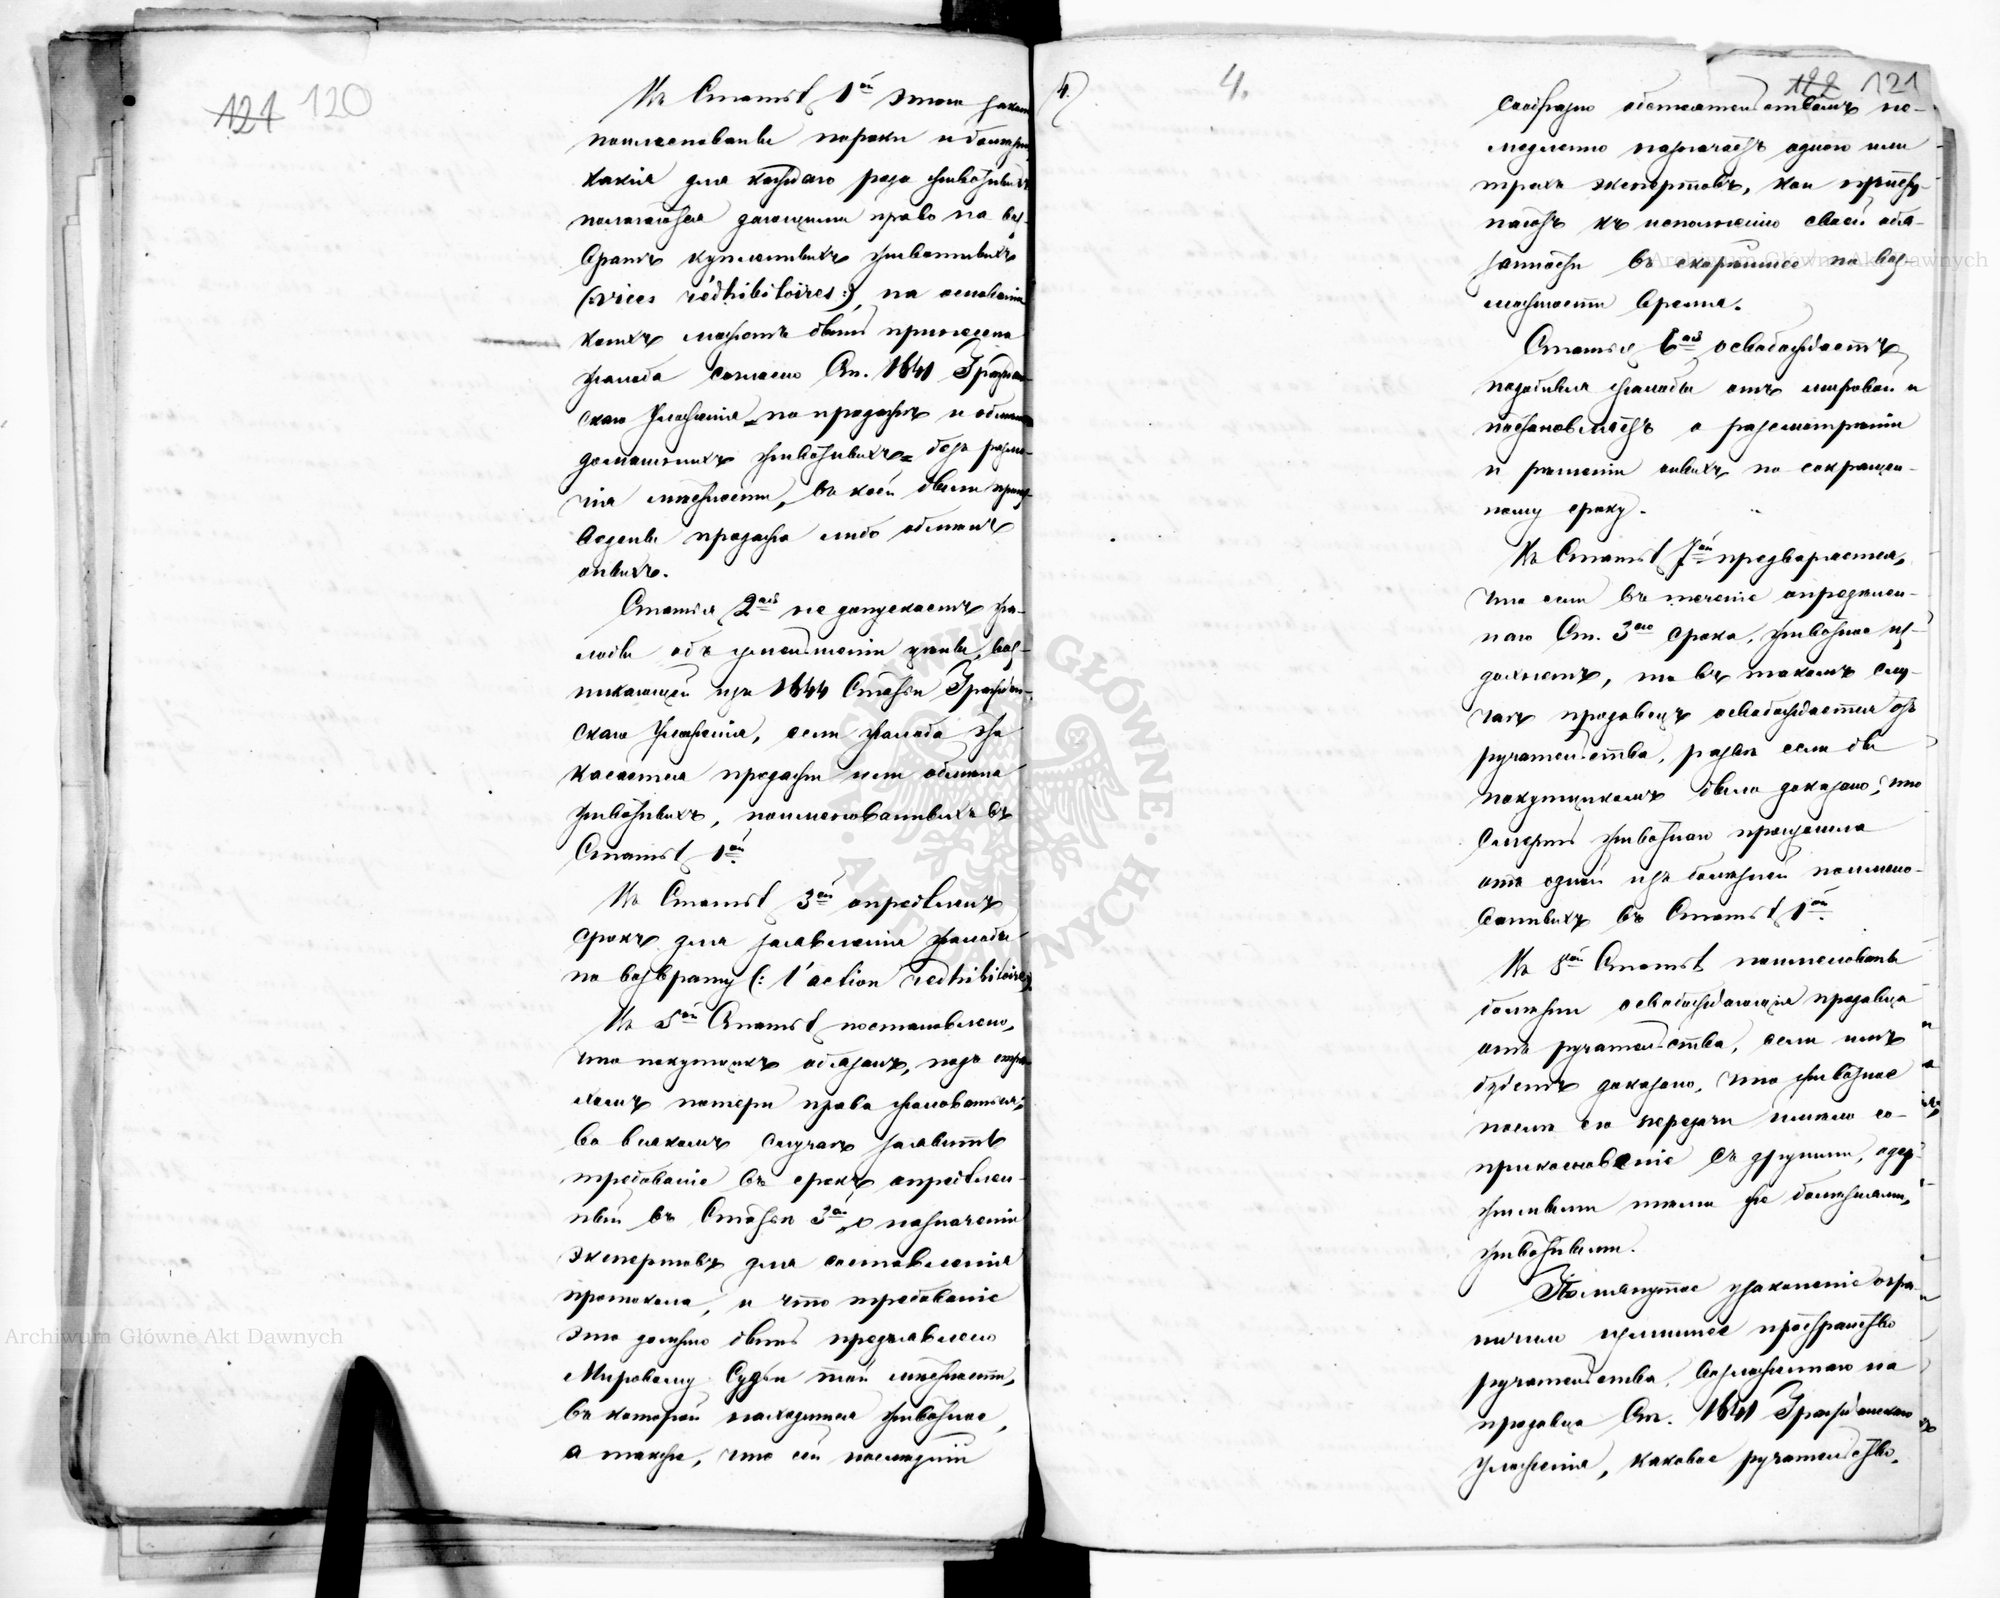 121 120
Въ Статьѣ 1ой этого закона
поименованы пороки и болѣзни,
какія для каждаго рода животныхъ
полагаются дающими право на воз-
вратъ купленныхъ животныхъ
(vices rédhibitoires:), на основаніи
коихъ можетъ быть принесена
жалоба согласно Ст. 1641 Граждан-
скаго Уложенія по продажѣ и обмѣнѣ
домашнихъ животныхъ безъ разли-
чія мѣстности, въ коей были произ-
ведены продажа либо обмѣнъ
оныхъ.
Статья 2ая не допускаетъ жа-
лобы объ уменьшеніи цѣны, воз-
никающей изъ 1644 Статьи Граждан-
скаго Уложенія, если жалоба эта
касается продажи или обмѣна
животныхъ, поименованныхъ въ
Статьѣ 1ой
Въ Статьѣ 3ей опредѣленъ
срокъ для заявленія жалобы
по возврату (: l'action redhibitoire:)
Въ 5ой Статьѣ постановлено,
что покупщикъ обязанъ, подъ стра-
хомъ потери права жаловаться,
во всякомъ случаѣ заявить
требованіе въ срокъ опредѣлен-
ный въ Статьѣ 3ей о назначеніи
экспертовъ для составленія
протокола, и что требованіе
это должно быть предъявлено
Мировому Судьи той мѣстности,
въ которой находится животное,
а также, что сей послѣдній
4.) 4.
122 121
сообразно обстоятельствамъ не-
медленно назначаетъ одного или
трехъ экспертовъ, кои присту-
паютъ къ исполненію своей обя-
занности въ скорѣйшее по воз-
можности время.
Статья 6ая освобождаетъ
подобныя жалобы отъ мировой и
постановляетъ о разсмотрѣніи
и рѣшеніи оныхъ по сокращен-
ному сроку.
Въ Статьѣ 7ой предваряется,
что если въ теченіе опредѣлен-
наго Ст. 3ею срока, животное из-
дохнетъ, то въ такомъ слу-
чаѣ продавецъ освобождается отъ
ручательства, развѣ если бы
покупщикомъ было доказано, что
смерть животнаго произошла
отъ одной изъ болѣзней поимено-
ванныхъ въ Статьѣ 1ой
Въ 8ой Статьѣ поименованы
болѣзни освобождающія продавца
отъ ручательства, если имъ
будетъ доказано, что животное
послѣ его передачи имѣло со-
прикосновеніе съ другими, одер-
жимыми тѣми же болѣзнями,
животными.
Помянутое узаконеніе огра-
ничило излишнее пространство
ручательства, возложеннаго на
продавца Ст. 1641 Гражданскаго
Уложенія, каковое ручательство,
Archiwum Główne Akt Dawnych
Archiwum Główne Akt Dawnych
ARCHIWUM GŁÓWNE
AKT DAWNYCH